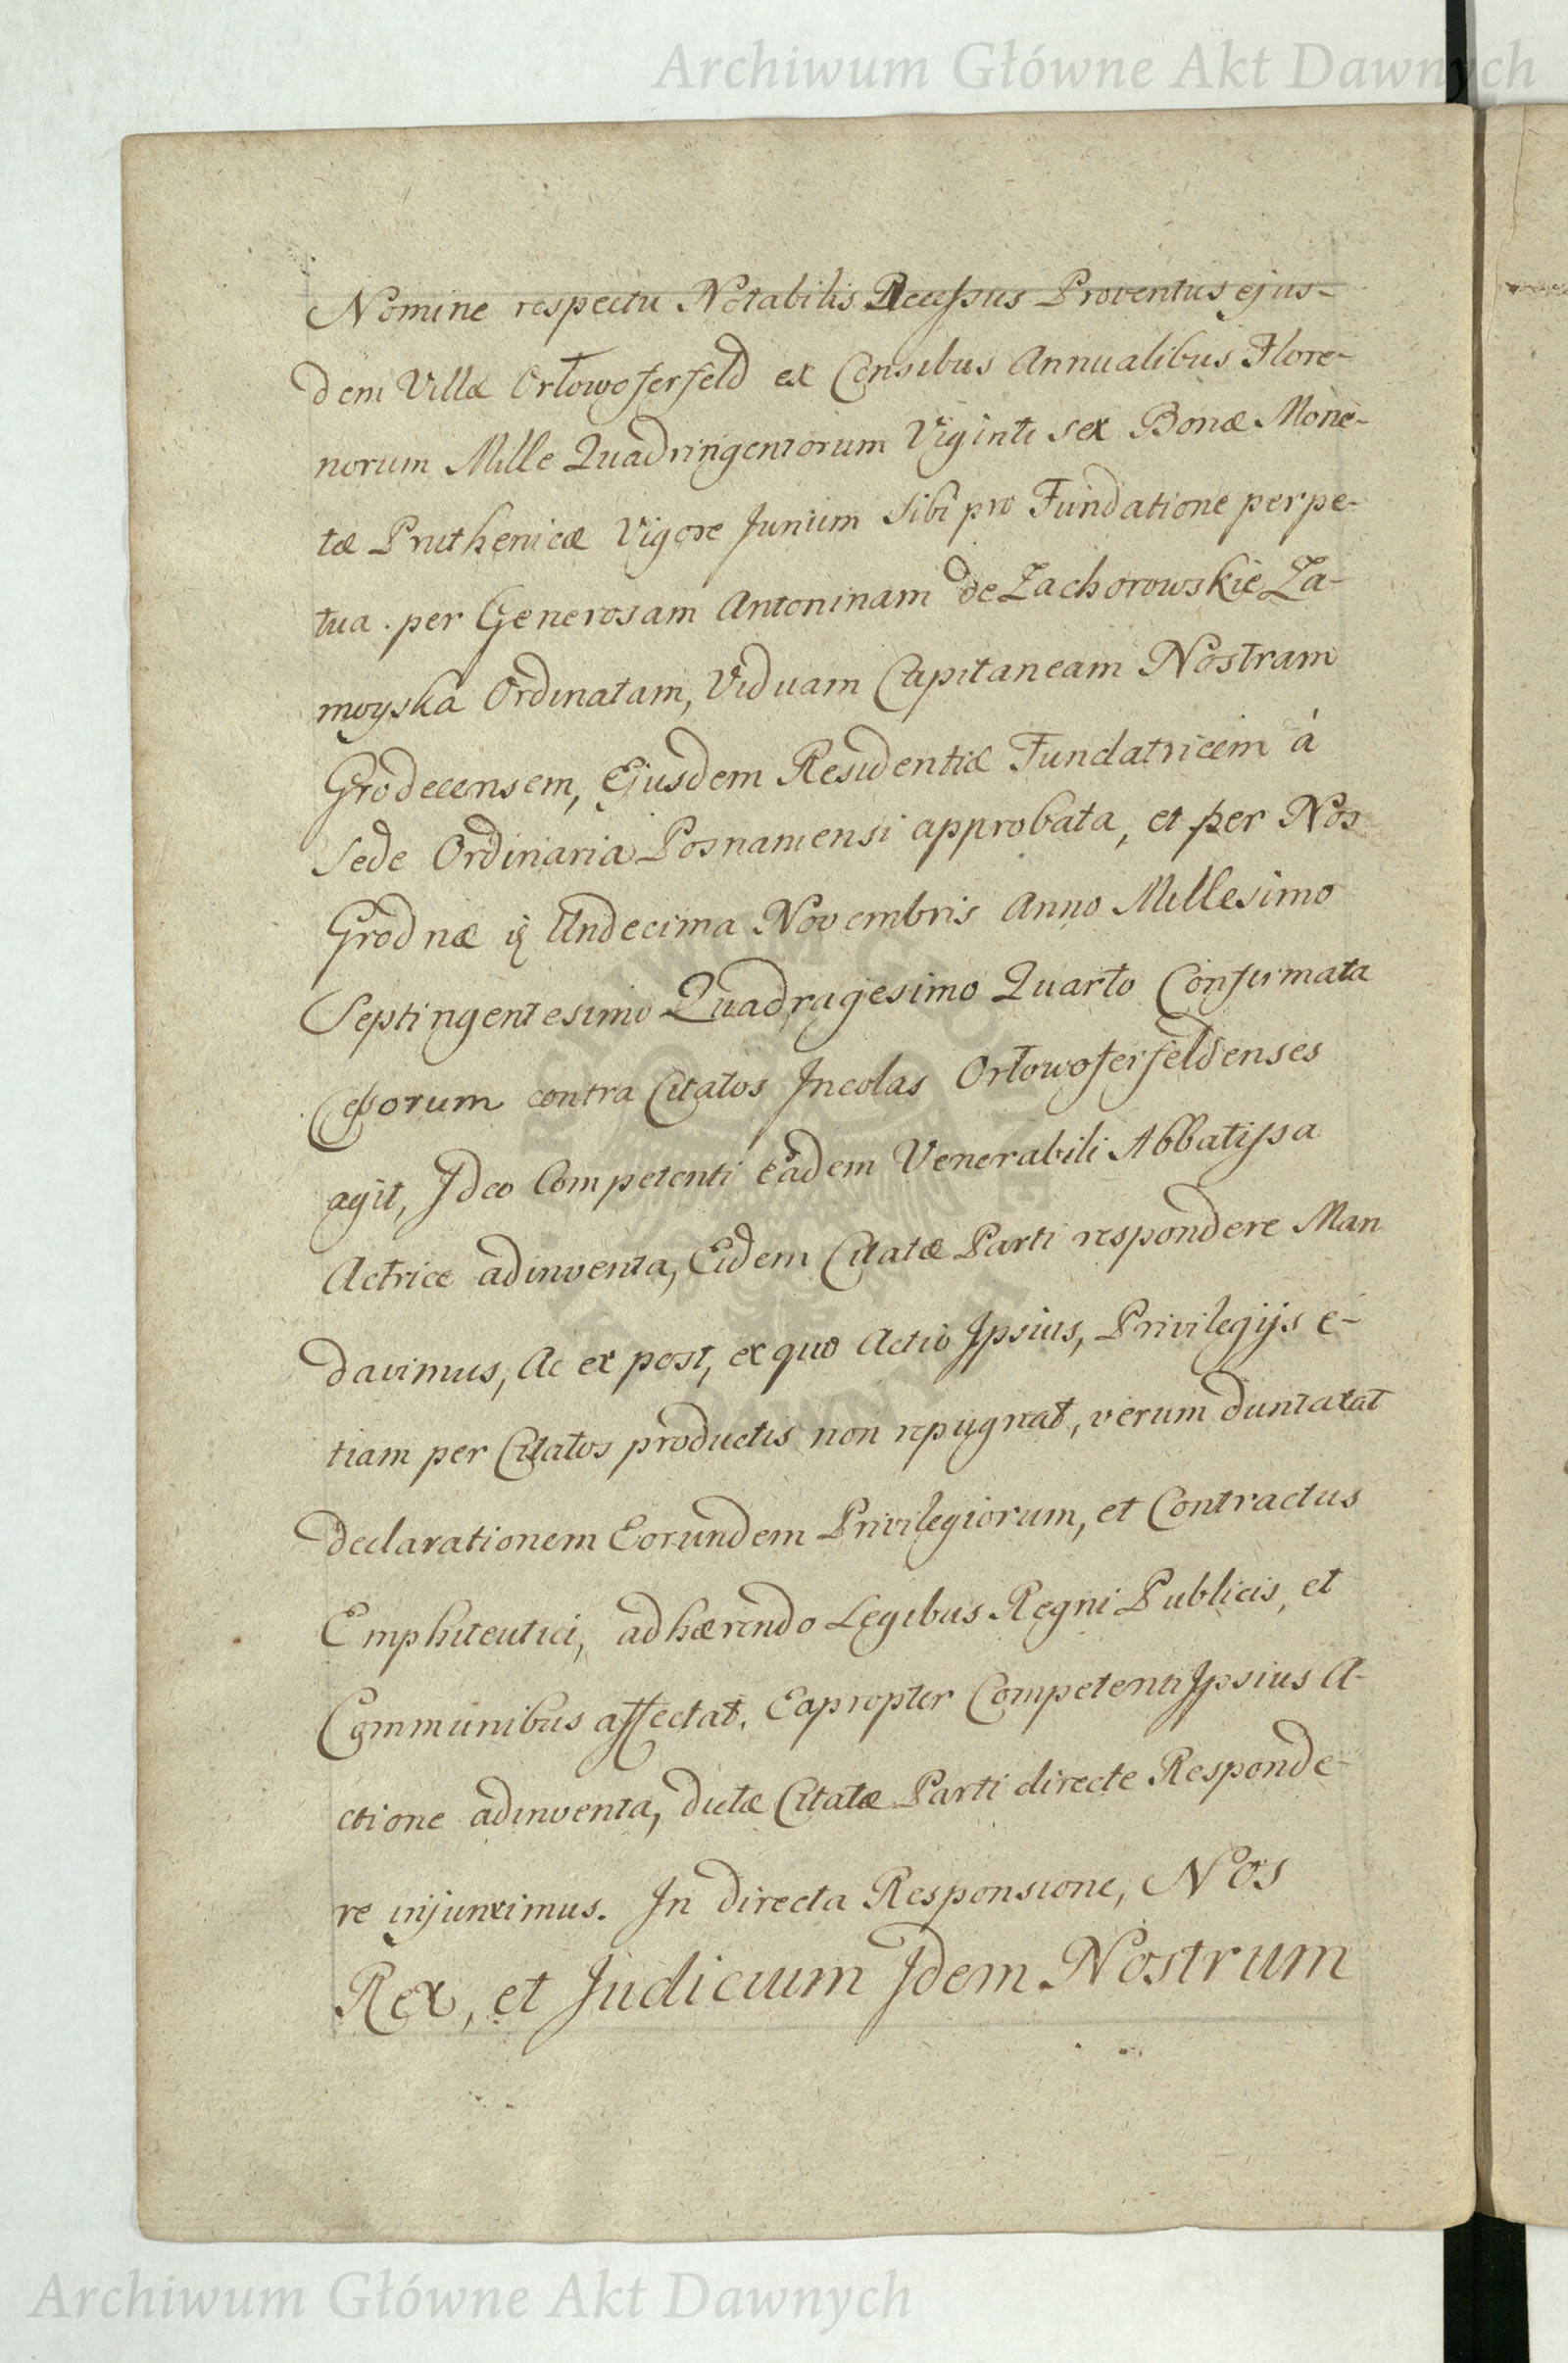 Archiwum Główne Akt Dawnych
Nomine respectu Notabilis Recessus Proventus ejus-
dem Villæ Orłowoferfeld ex Censibus Annualibus Flore-
norum Mille Quadringentorum Viginti sex Bonæ Mone-
tæ Pruthenicæ Vigore Jurium sibi pro Fundatione perpe-
tua per Generosam Antoninam de Zachorowskie Za-
moyska Ordinatam, Viduam Capitaneam Nostram
Grodecensem, Ejusdem Residentiæ Fundatricem á
Sede Ordinaria Posnaniensi approbata, et per Nos
Grodnæ Undecima Novembris Anno Millesimo
Septingentesimo Quadragesimo Quarto Confirmata
Cessorum contra Citatos Incolas Orłowoferfeldenses
agit, Ideo Competenti eadem Venerabili Abbatissa
Actrice adinventa, Eidem Citatæ Parti respondere Man
davimus, Ac ex post, ex quo Actio Ipsius, Privilegijs e-
tiam per Citatos productis non repugnat, verum duntaxat
declarationem Eorundem Privilegiorum, et Contractus
Emphiteutici, adhærendo Legibus Regni Publicis, et
Communibus affectat. Eapropter Competenti Ipsius A-
ctione adinventa, dictæ Citatæ Parti directe Responde-
re injunximus. In directa Responsione, Nos
Rex, et Judicium Idem Nostrum
Archiwum Główne Akt Dawnych